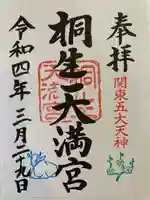 奉拝
関東五大天神
桐生天満宮
令和四年 三月二十九日